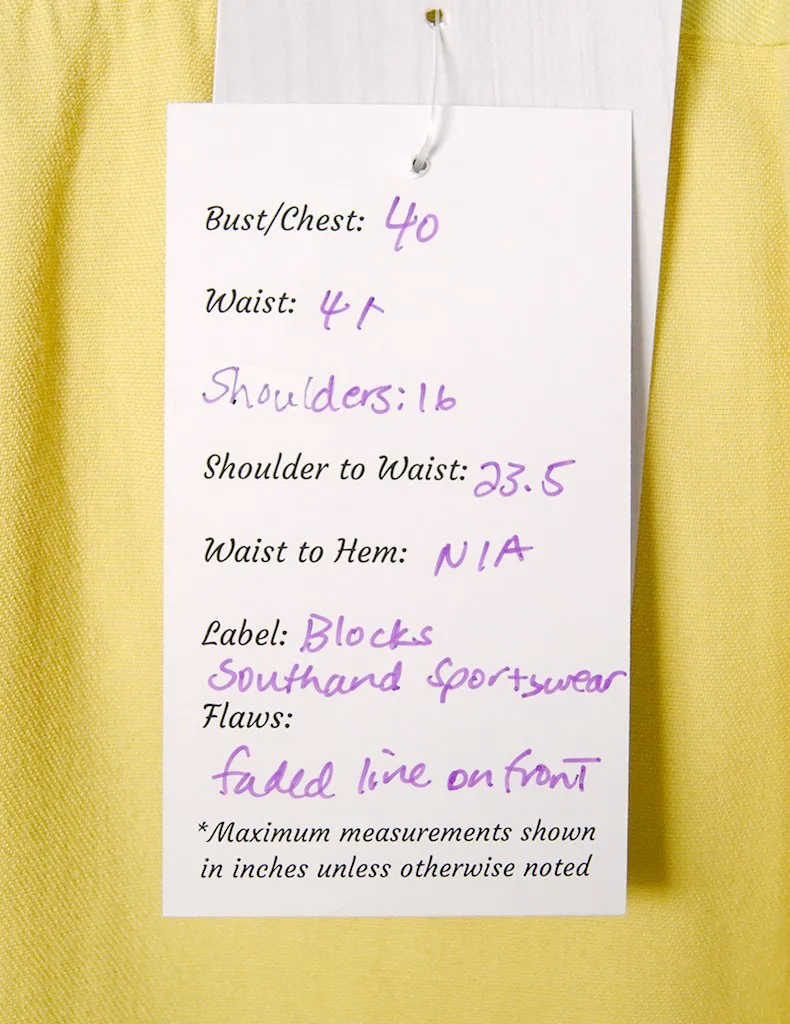 Bust/Chest: 40
Waist: 41
Shoulders: 16
Shoulder to Waist: 23.5
Waist to Hem: N/A
Label: Blocks
Southand Sportswear
Flaws:
faded line on front
*Maximum measurements shown
in inches unless otherwise noted